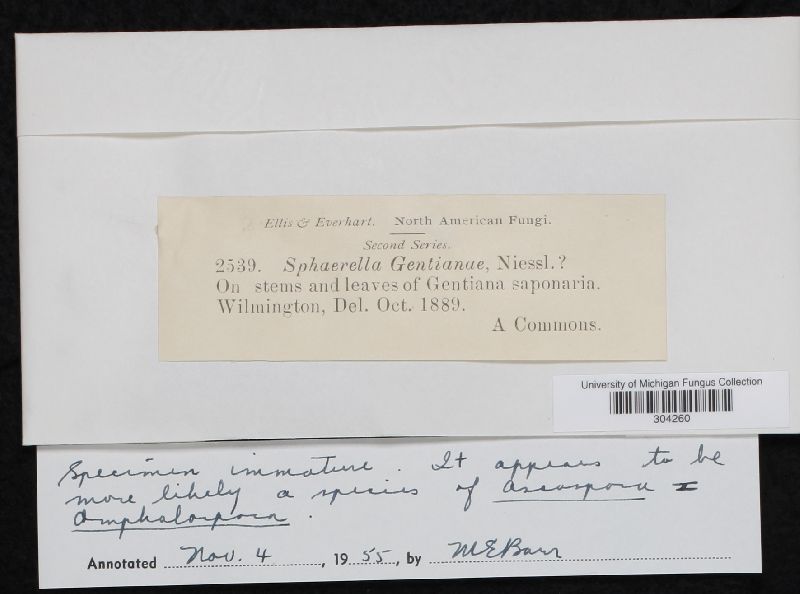 Ellis & Everhart. North American Fungi.
Second Series.
2539. Sphaerella Gentianae, Niessl.?
On stems and leaves of Gentiana saponaria.
Wilmington, Del. Oct. 1889.
A Commons.
University of Michigan Fungus Collection
304260
Specimen immature. It appears to be
more likely a species of Ascospora =
Omphalospora.
Annotated Nov. 4, 1955, by MEBarr